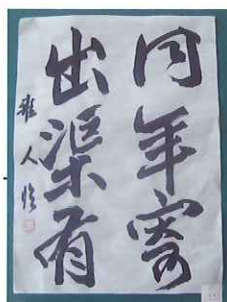 同年寄
出渠有
雅人